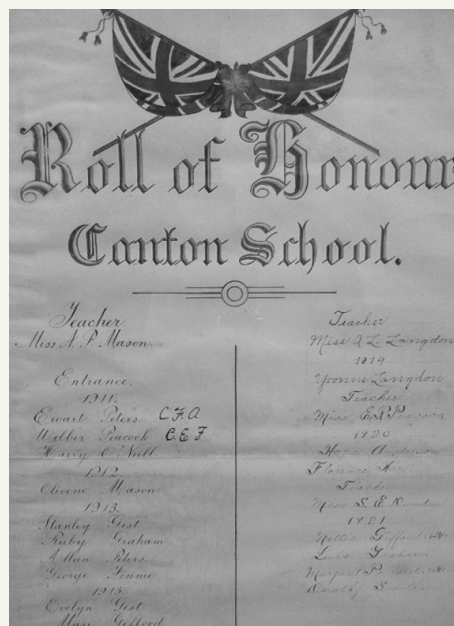 Roll of Honour
Canton School.
Teacher.
Miss A. P. Mason.
Entrance.
1911.
Ewart Peters C.F.A
Wilber Peacock C.E.F
Harry O'Neill
1912.
Olivene Mason
1913.
Stanley Gist
Ruby Graham
Allan Peters.
George
1915
Evelyn Gist
Mary Gifford
Teacher
Miss A. L. Langdon
1919
Yvonne Langdon
Teacher
Miss E. R. Peacock
1920
Hope Anderson
Florence
Teacher
Miss S. E.
1921
Nellie Gifford
Luda Graham
Margaret P.
Dorothy